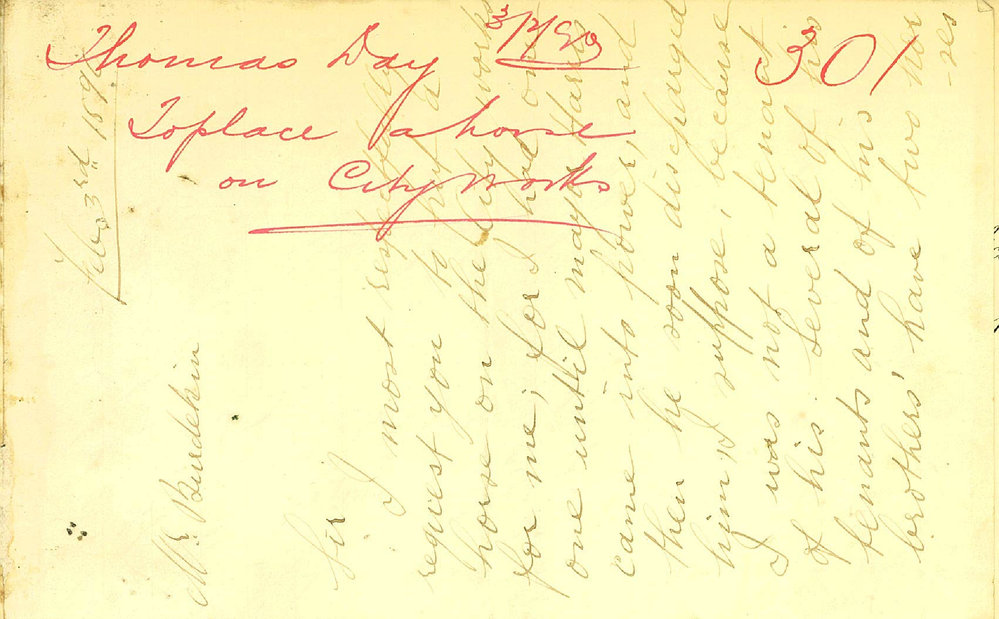 Thomas Day 3/2/90 301
To place a horse
on City Works
Feby 3rd 189
Mr. Burdekin
Sir
I most respectfully
request you to put a
horse on the City works
for me; for I had one
one until mayor Harris
came into power, and
then he soon discharged
him, I suppose, because
I was not a tenant
of his. Several of his
tenants and of his
brothers' have two hor
-ses